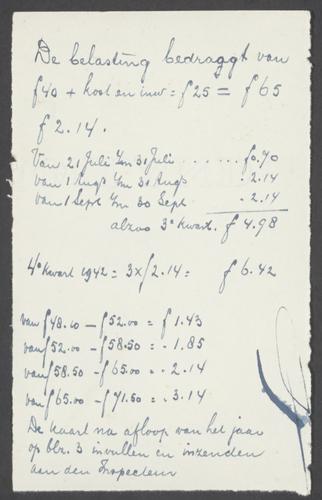 De belasting bedraagt van
f40 + kost en inw = f25 = f65
f 2.14.
Van 21 Juli t/m 31 Juli . . . . . . f0.70
van 1 Augs t/m 31 Augs - 2.14
van 1 Sept t/m 30 Sept - 2.14
alzoo 3e Kwart. f 4.98
4e Kwart 1942 = 3 x f 2.14 = f 6.42
van f48.10 — f52.00 = f 1.43
van f52.00 - f58.50 = - 1.85
van f58.50 - f65.00 = - 2.14
van f65.00 - f71.50 = - 3.14
De kaart na afloop van het jaar
op blz. 3 invullen en inzenden
aan den Inspecteur